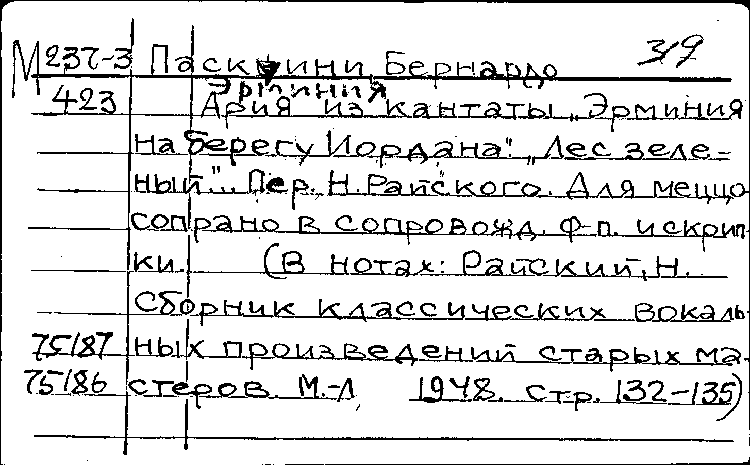 М 237-3 Паскуини, Бернардо 319
Эрминия
423 Ария из кантаты „Эрминия
на берегу Иордана". „Лес зеле-
ный"... Пер. Н. Райского. Для меццо
сопрано в сопровожд. ф-п. и скрип-
ки. (В нотах: Райский, Н.
Сборник классических вокаль-
75187 ных произведений старых ма-
75186 стеров. М.-Л 1948. стр. 132-135)